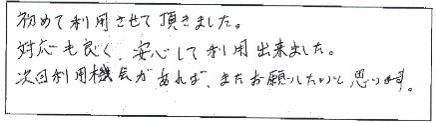 初めて利用させて頂きました。
対応も良く、安心して利用出来ました。
次回利用機会があれば、またお願いしたいと思います。